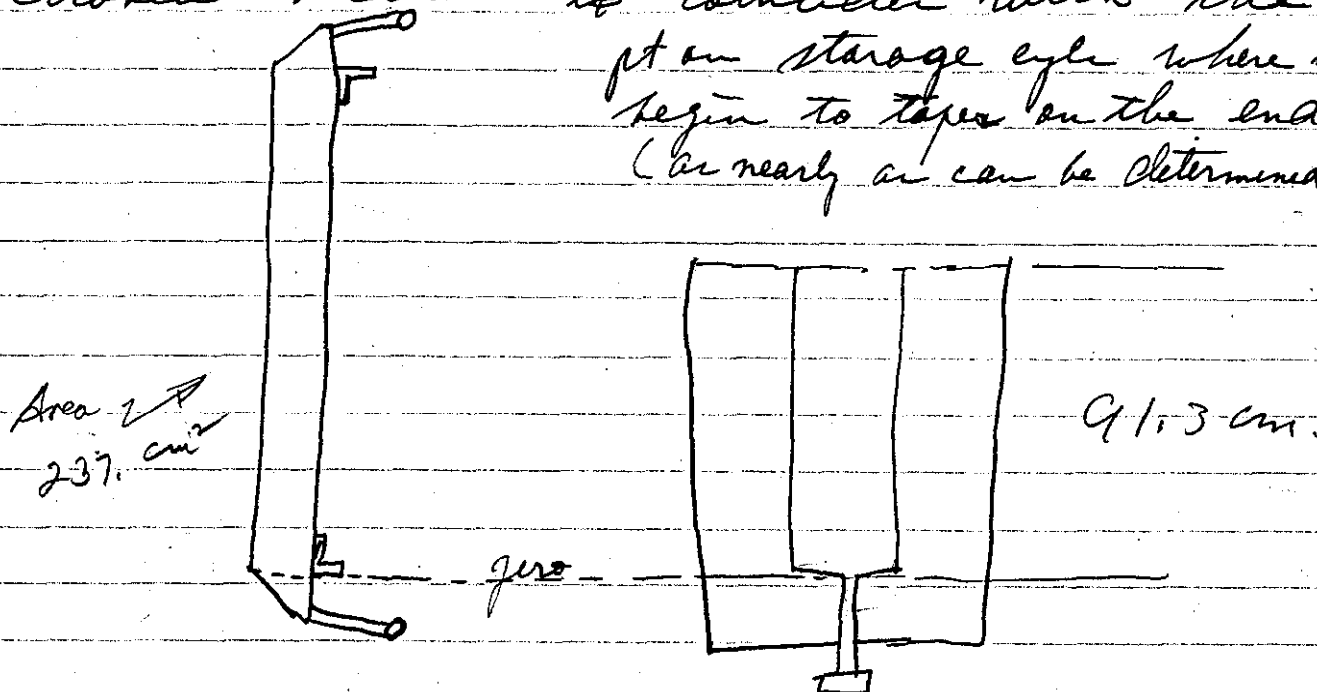 if computer
pt on storage cyl where
begin to taper on the end
(as nearly as can be determined
Area
237. cm²
91.3 cm.
zero